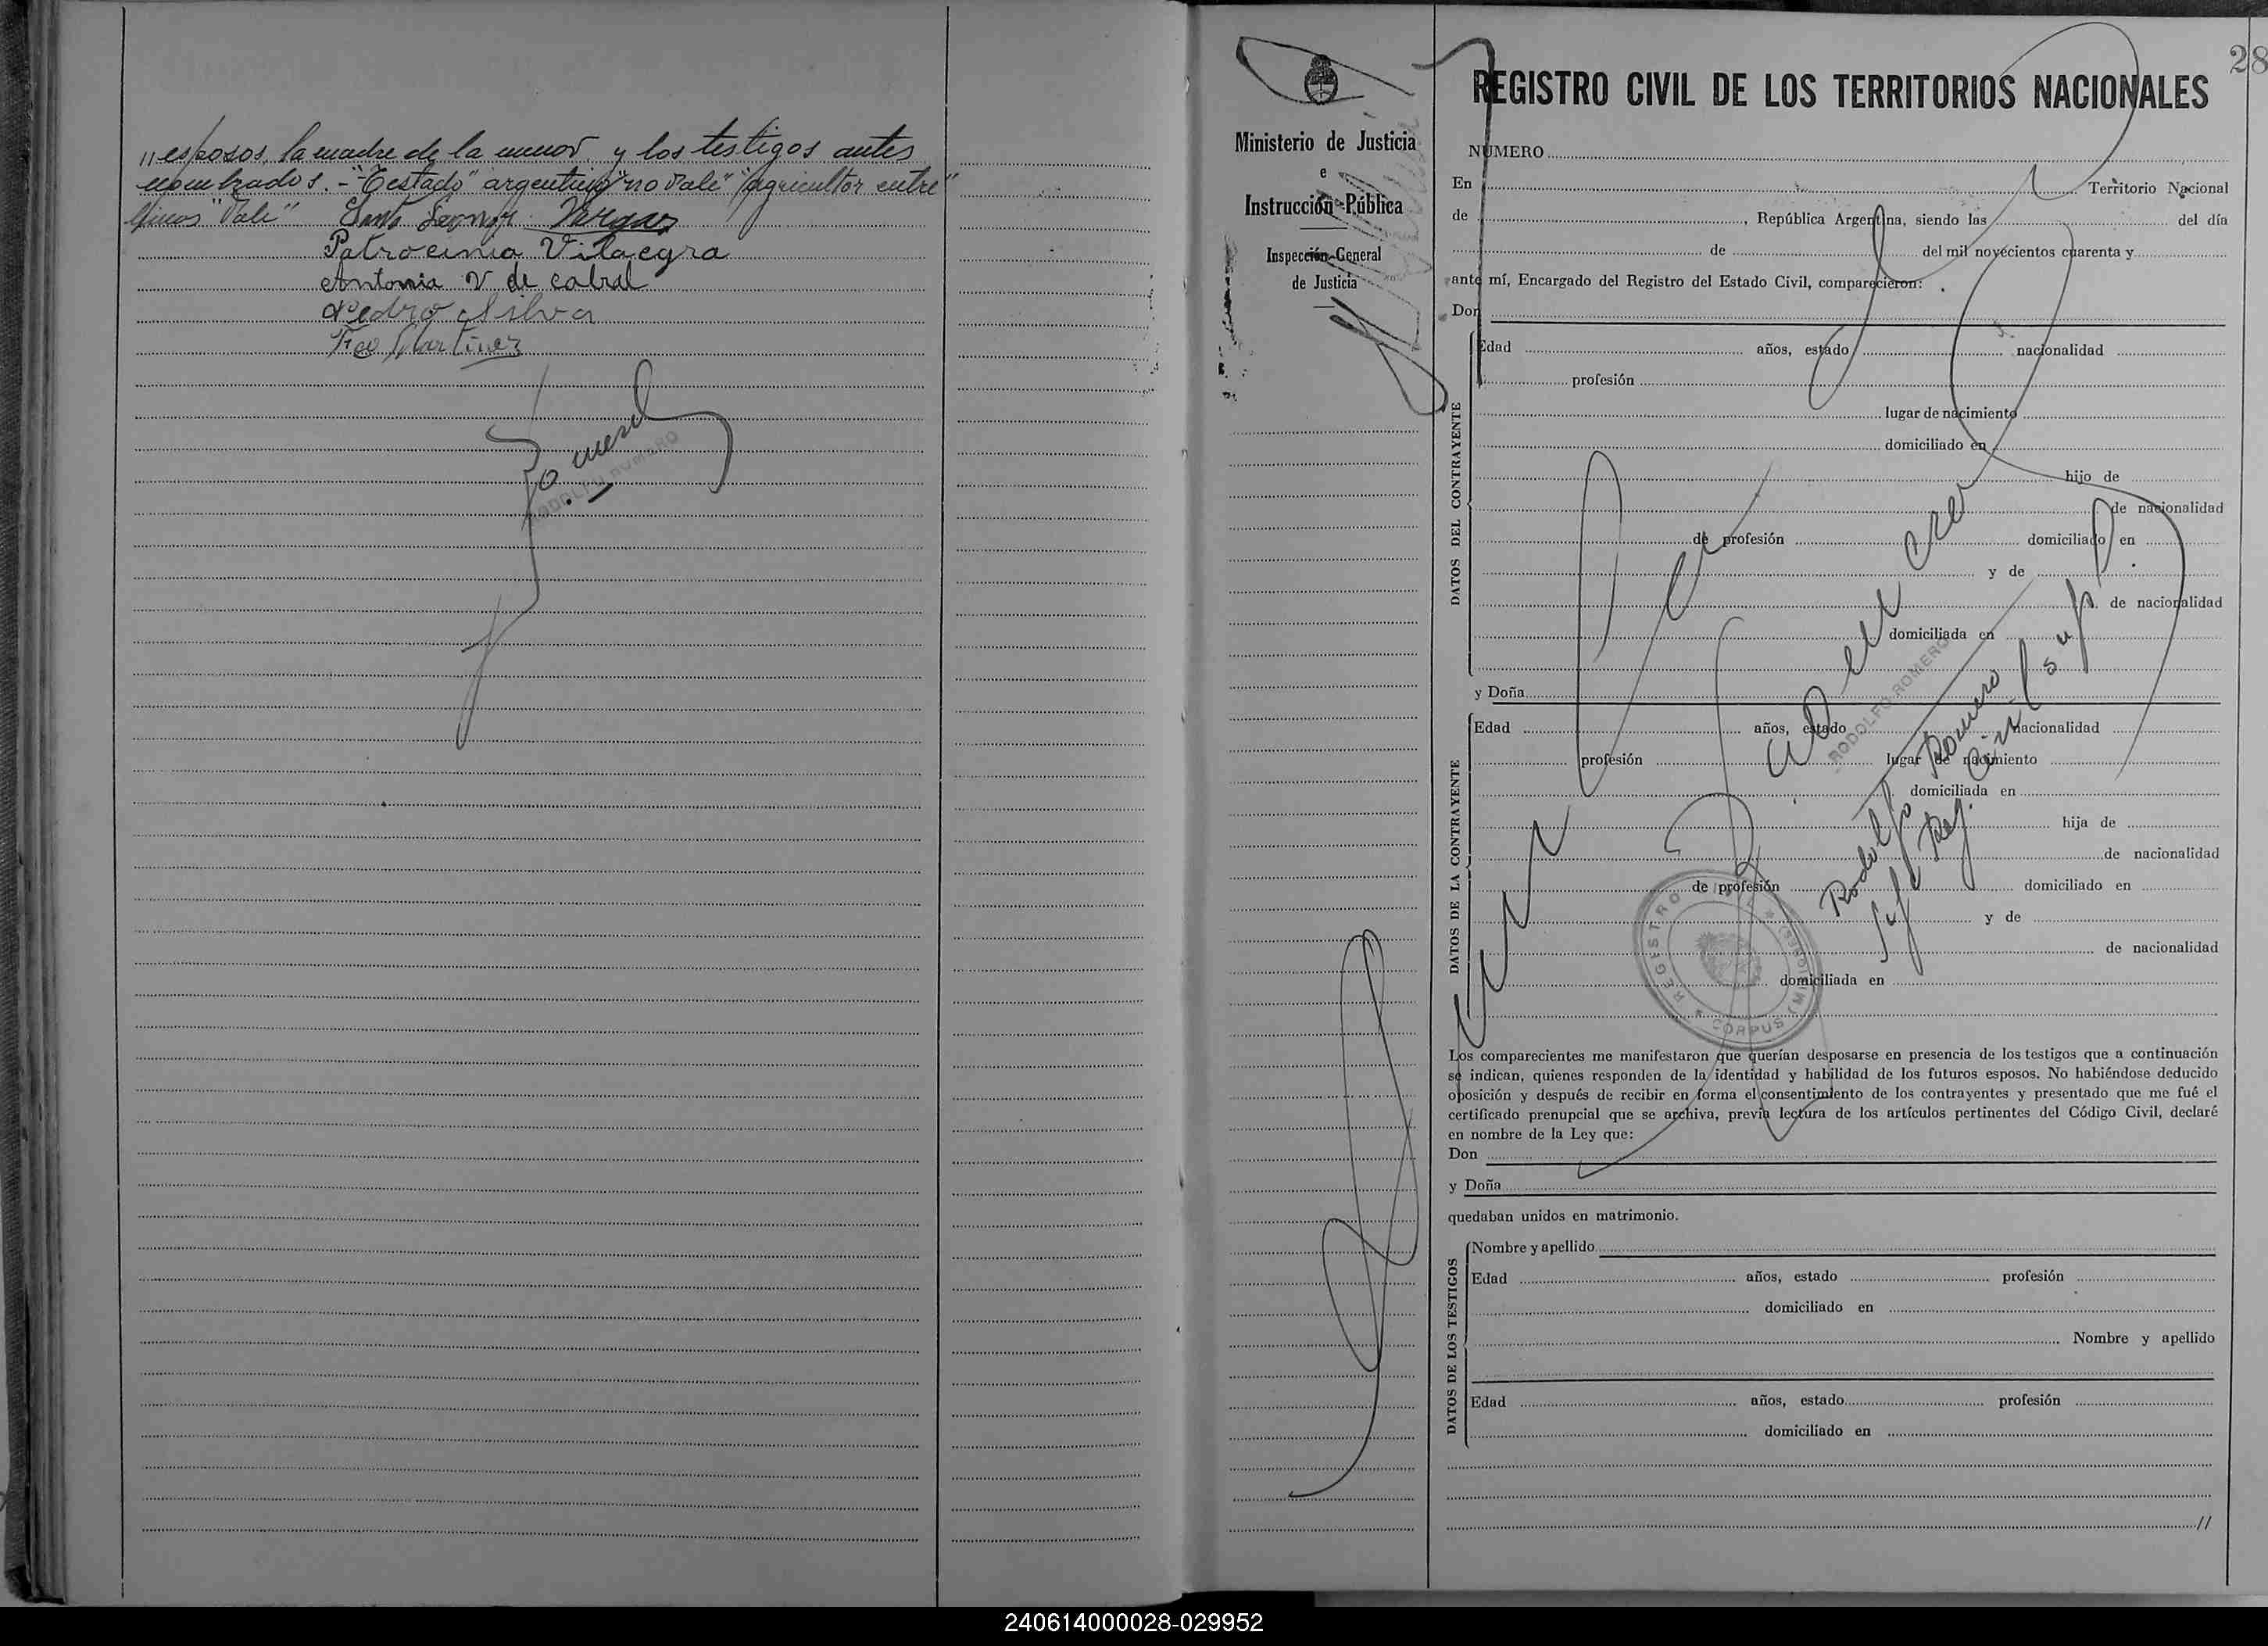 " esposos, la madre de la menor y los testigos antes
nombrados. - "Testado" argentino "no vale" "agricultor entre"
líneas "Vale" Santo Vargas
Patrocinia Vilaegra
Antonia V de cabral
Pedro Silva
Fco Martinez
RODOLFO ROMERO
Ministerio de Justicia
e
Instrucción Pública
Inspección General
de Justicia
28
REGISTRO CIVIL DE LOS TERRITORIOS NACIONALES
NÚMERO
En Territorio Nacional
de , República Argentina, siendo las del día
de del mil novecientos cuarenta y
ante mí, Encargado del Registro del Estado Civil, comparecieron:
Don
DATOS DEL CONTRAYENTE
Edad años, estado nacionalidad
profesión
lugar de nacimiento
domiciliado en
hijo de
de nacionalidad
de profesión domiciliado en
y de
de nacionalidad
domiciliada en
y Doña
DATOS DE LA CONTRAYENTE
Edad años, estado nacionalidad
profesión lugar de nacimiento
domiciliada en
hija de
de nacionalidad
de profesión domiciliado en
y de
de nacionalidad
domiciliada en
RODOLFO ROMERO
Rodolfo Romero
Jefe Reg. Civil sup
REGISTRO CIVIL
CORPUS (MISIONES)
Los comparecientes me manifestaron que querían desposarse en presencia de los testigos que a continuación
se indican, quienes responden de la identidad y habilidad de los futuros esposos. No habiéndose deducido
oposición y después de recibir en forma el consentimiento de los contrayentes y presentado que me fué el
certificado prenupcial que se archiva, previa lectura de los artículos pertinentes del Código Civil, declaré
en nombre de la Ley que:
Don
y Doña
quedaban unidos en matrimonio.
DATOS DE LOS TESTIGOS
Nombre y apellido
Edad años, estado profesión
domiciliado en
Nombre y apellido
Edad años, estado profesión
domiciliado en
//
240614000028-029952